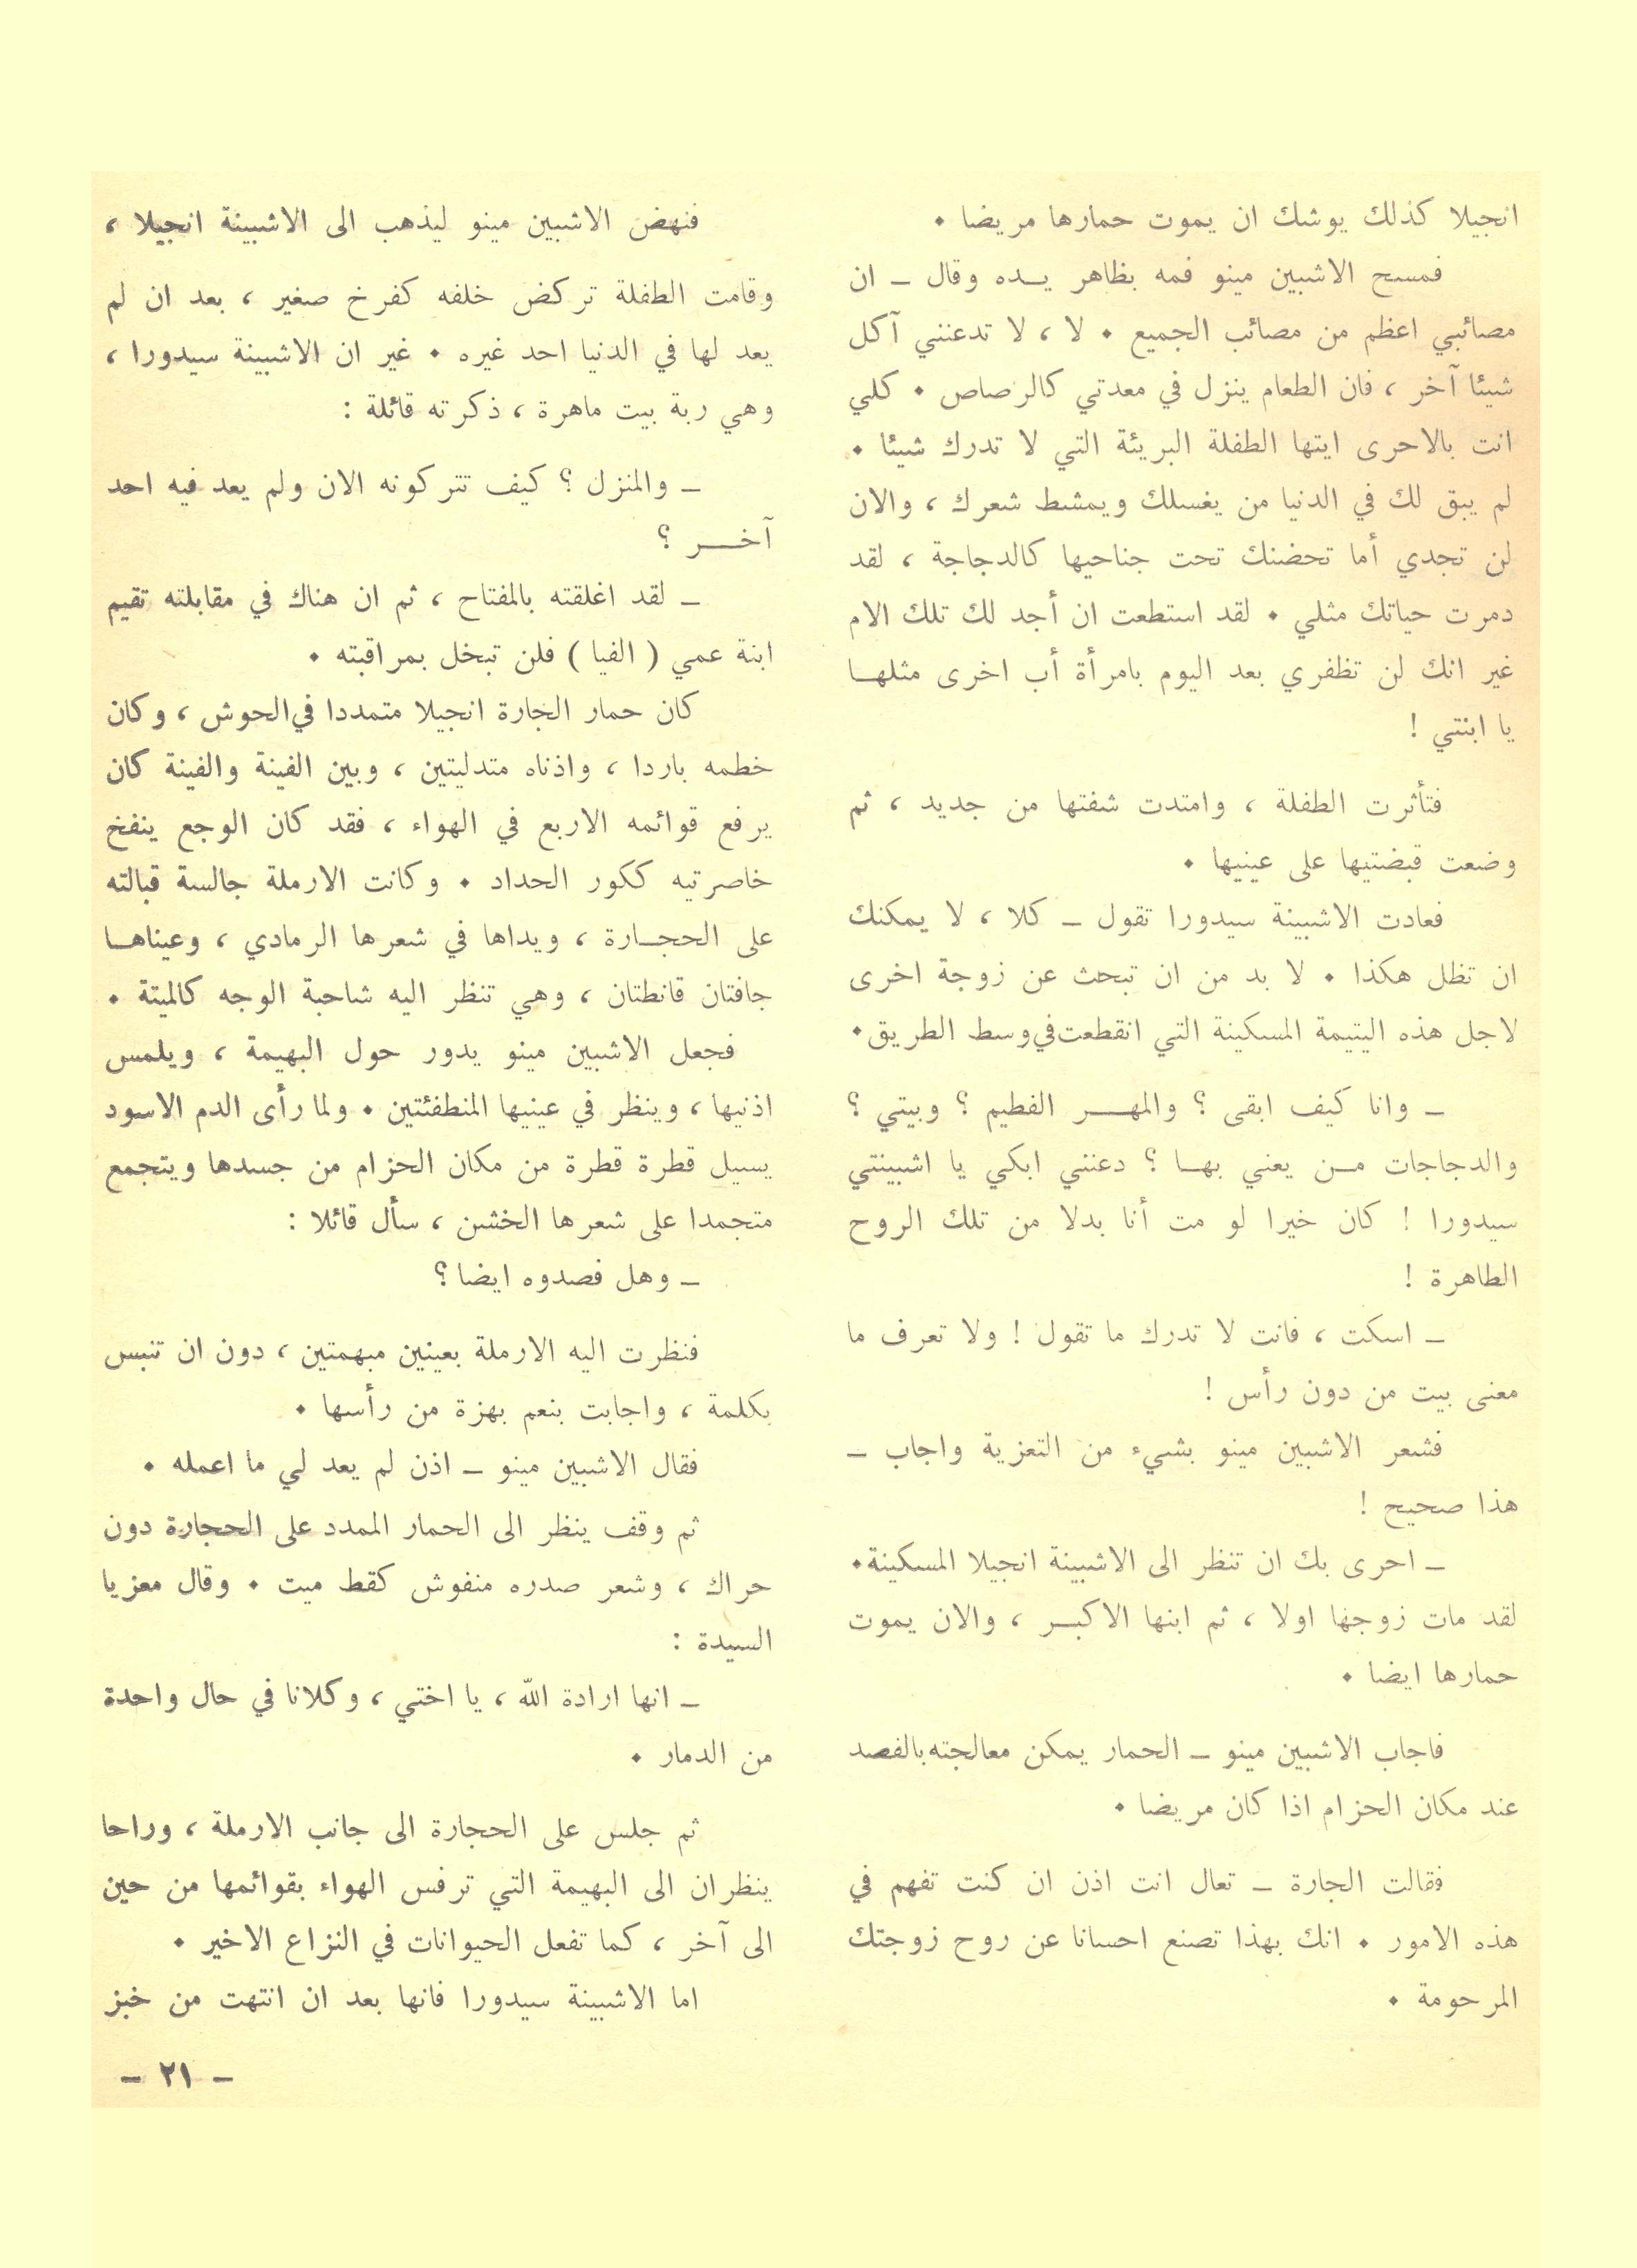 انجيلا كذلك يوشك ان يموت حمارها مريضا ٠
فمسح الاشبين مينو فمه بظاهر يــده وقال ــ ان
مصائبي اعظم من مصائب الجميع ٠ لا ، لا تدعنني آكل
شيئا آخر ، فان الطعام ينزل في معدتي كالرصاص ٠ كلي
انت بالاحرى ايتها الطفلة البريئة التي لا تدرك شيئا ٠
لم يبق لك في الدنيا من يغسلك ويمشط شعرك ، والان
لن تجدي أما تحضنك تحت جناحيها كالدجاجة ، لقد
دمرت حياتك مثلي ٠ لقد استطعت ان أجد لك تلك الام
غير انك لن تظفري بعد اليوم بامرأة أب اخرى مثلهــا
يا ابنتي !
فتأثرت الطفلة ، وامتدت شفتها من جديد ، ثم
وضعت قبضتيها على عينيها ٠
فعادت الاشبينة سيدورا تقول ــ كلا ، لا يمكنك
ان تظل هكذا ٠ لا بد من ان تبحث عن زوجة اخرى
لاجل هذه اليتيمة المسكينة التي انقطعت في وسط الطريق ٠
ــ وانا كيف ابقى ؟ والمهــــر الفطيم ؟ وبيتي ؟
والدجاجات مــن يعني بهــا ؟ دعنني ابكي يا اشبينتي
سيدورا ! كان خيرا لو مت أنا بدلا من تلك الروح
الطاهرة !
ــ اسكت ، فانت لا تدرك ما تقول ! ولا تعرف ما
معنى بيت من دون رأس !
فشعر الاشبين مينو بشيء من التعزية واجاب ــ
هذا صحيح !
ــ احرى بك ان تنظر الى الاشبينة انجيلا المسكينة ٠
لقد مات زوجها اولا ، ثم ابنها الاكبــر ، والان يموت
حمارها ايضا ٠
فاجاب الاشبين مينو ــ الحمار يمكن معالجته بالفصد
عند مكان الحزام اذا كان مريضا ٠
فقالت الجارة ــ تعال انت اذن ان كنت تفهم في
هذه الامور ٠ انك بهذا تصنع احسانا عن روح زوجتك
المرحومة ٠
فنهض الاشبين مينو ليذهب الى الاشبينة انجيلا ،
وقامت الطفلة تركض خلفه كفرخ صغير ، بعد ان لم
يعد لها في الدنيا احد غيره ٠ غير ان الاشبينة سيدورا ،
وهي ربة بيت ماهرة ، ذكرته قائلة :
ــ والمنزل ؟ كيف تتركونه الان ولم يعد فيه احد
آخــــر ؟
ــ لقد اغلقته بالمفتاح ، ثم ان هناك في مقابلته تقيم
ابنة عمي ( الفيا ) فلن تبخل بمراقبته ٠
كان حمار الجارة انجيلا متمددا في الحوش ، وكان
خطمه باردا ، واذناه متدليتين ، وبين الفينة والفينة كان
يرفع قوائمه الاربع في الهواء ، فقد كان الوجع ينفخ
خاصرتيه ككور الحداد ٠ وكانت الارملة جالسة قبالته
على الحجــارة ، ويداها في شعرها الرمادي ، وعيناهــا
جافتان قانطتان ، وهي تنظر اليه شاحبة الوجه كالميتة ٠
فجعل الاشبين مينو يدور حول البهيمة ، ويلمس
اذنيها ، وينظر في عينيها المنطفئتين ٠ ولما رأى الدم الاسود
يسيل قطرة قطرة من مكان الحزام من جسدها ويتجمع
متجمدا على شعرها الخشن ، سأل قائلا :
ــ وهل فصدوه ايضا ؟
فنظرت اليه الارملة بعينين مبهمتين ، دون ان تنبس
بكلمة ، واجابت بنعم بهزة من رأسها ٠
فقال الاشبين مينو ــ اذن لم يعد لي ما اعمله ٠
ثم وقف ينظر الى الحمار الممدد على الحجارة دون
حراك ، وشعر صدره منفوش كقط ميت ٠ وقال معزيا
السيدة :
ــ انها ارادة الله ، يا اختي ، وكلانا في حال واحدة
من الدمار ٠
ثم جلس على الحجارة الى جانب الارملة ، وراحا
ينظران الى البهيمة التي ترفس الهواء بقوائمها من حين
الى آخر ، كما تفعل الحيوانات في النزاع الاخير ٠
اما الاشبينة سيدورا فانها بعد ان انتهت من خبز
ــ ٢١ ــ